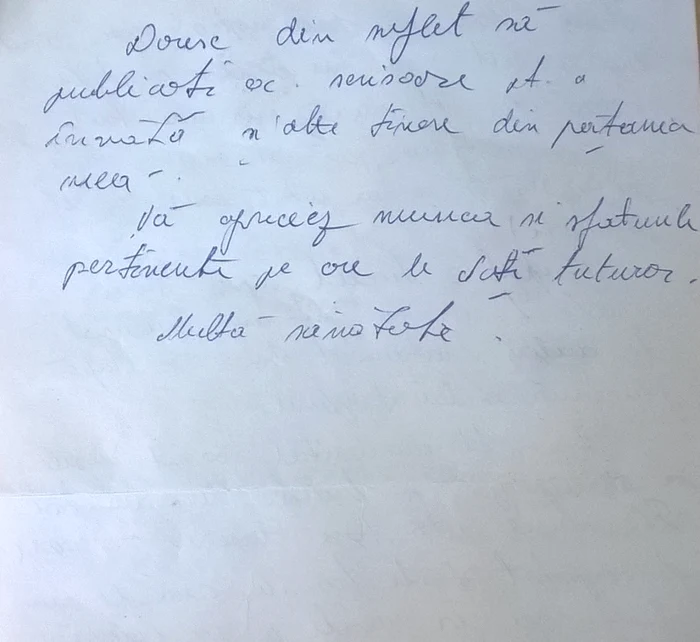 Doresc din suflet să
publicați ac. scrisoare pt. a
învăța s'alte tinere din pățania
mea.
Vă apreciez munca si sfaturile
pertinente pe care le dați tuturor.
Multă sănătate.